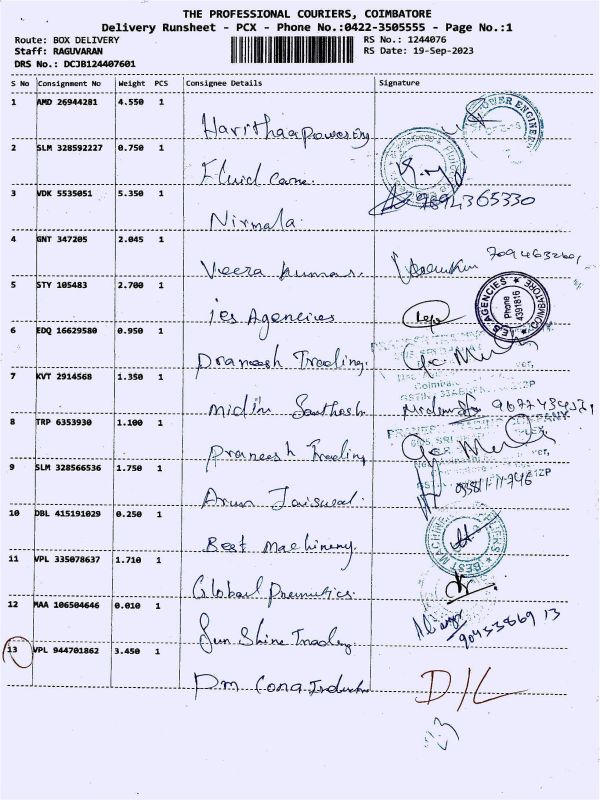 THE PROFESSIONAL COURIERS, COIMBATORE
Delivery Runsheet - PCX - Phone No.:0422-3505555 - Page No.:1
Route: BOX DELIVERY RS No.: 1244076
Staff: RAGUVARAN RS Date: 19-Sep-2023
DRS No.: DCJB124407601
S No Consignment No Weight PCS Consignee Details Signature
1 AMD 26944281 4.550 1
POWER ENGINEER
Harithaapowering
2 SLM 328592227 0.750 1
Fluid Care.
3 VDK 5535051 5.350 1 7894365330
Nirmala.
4 GNT 347205 2.045 1
Veera kumar.
5 STY 105483 2.700 1
ies Agencies
I.E.S AGENCIES
Phone
4391816
COIMBATORE
6 EDQ 16629580 0.950 1
Praneesh Trading.
7 KVT 2914568 1.350 1
Coimbat
Midin Santhosh
8 TRP 6353930 1.100 1
Praneesh Trading
9 SLM 328566536 1.750 1
Arun Jaiswal.
10 DBL 415191029 0.250 1
Best machinery.
BEST MACHINE
11 VPL 335078637 1.710 1
Global Pnemutics.
12 MAA 106504646 0.010 1
Sun Shine Trading
13 VPL 944701862 3.450 1
Pm Cona Industri
D/L